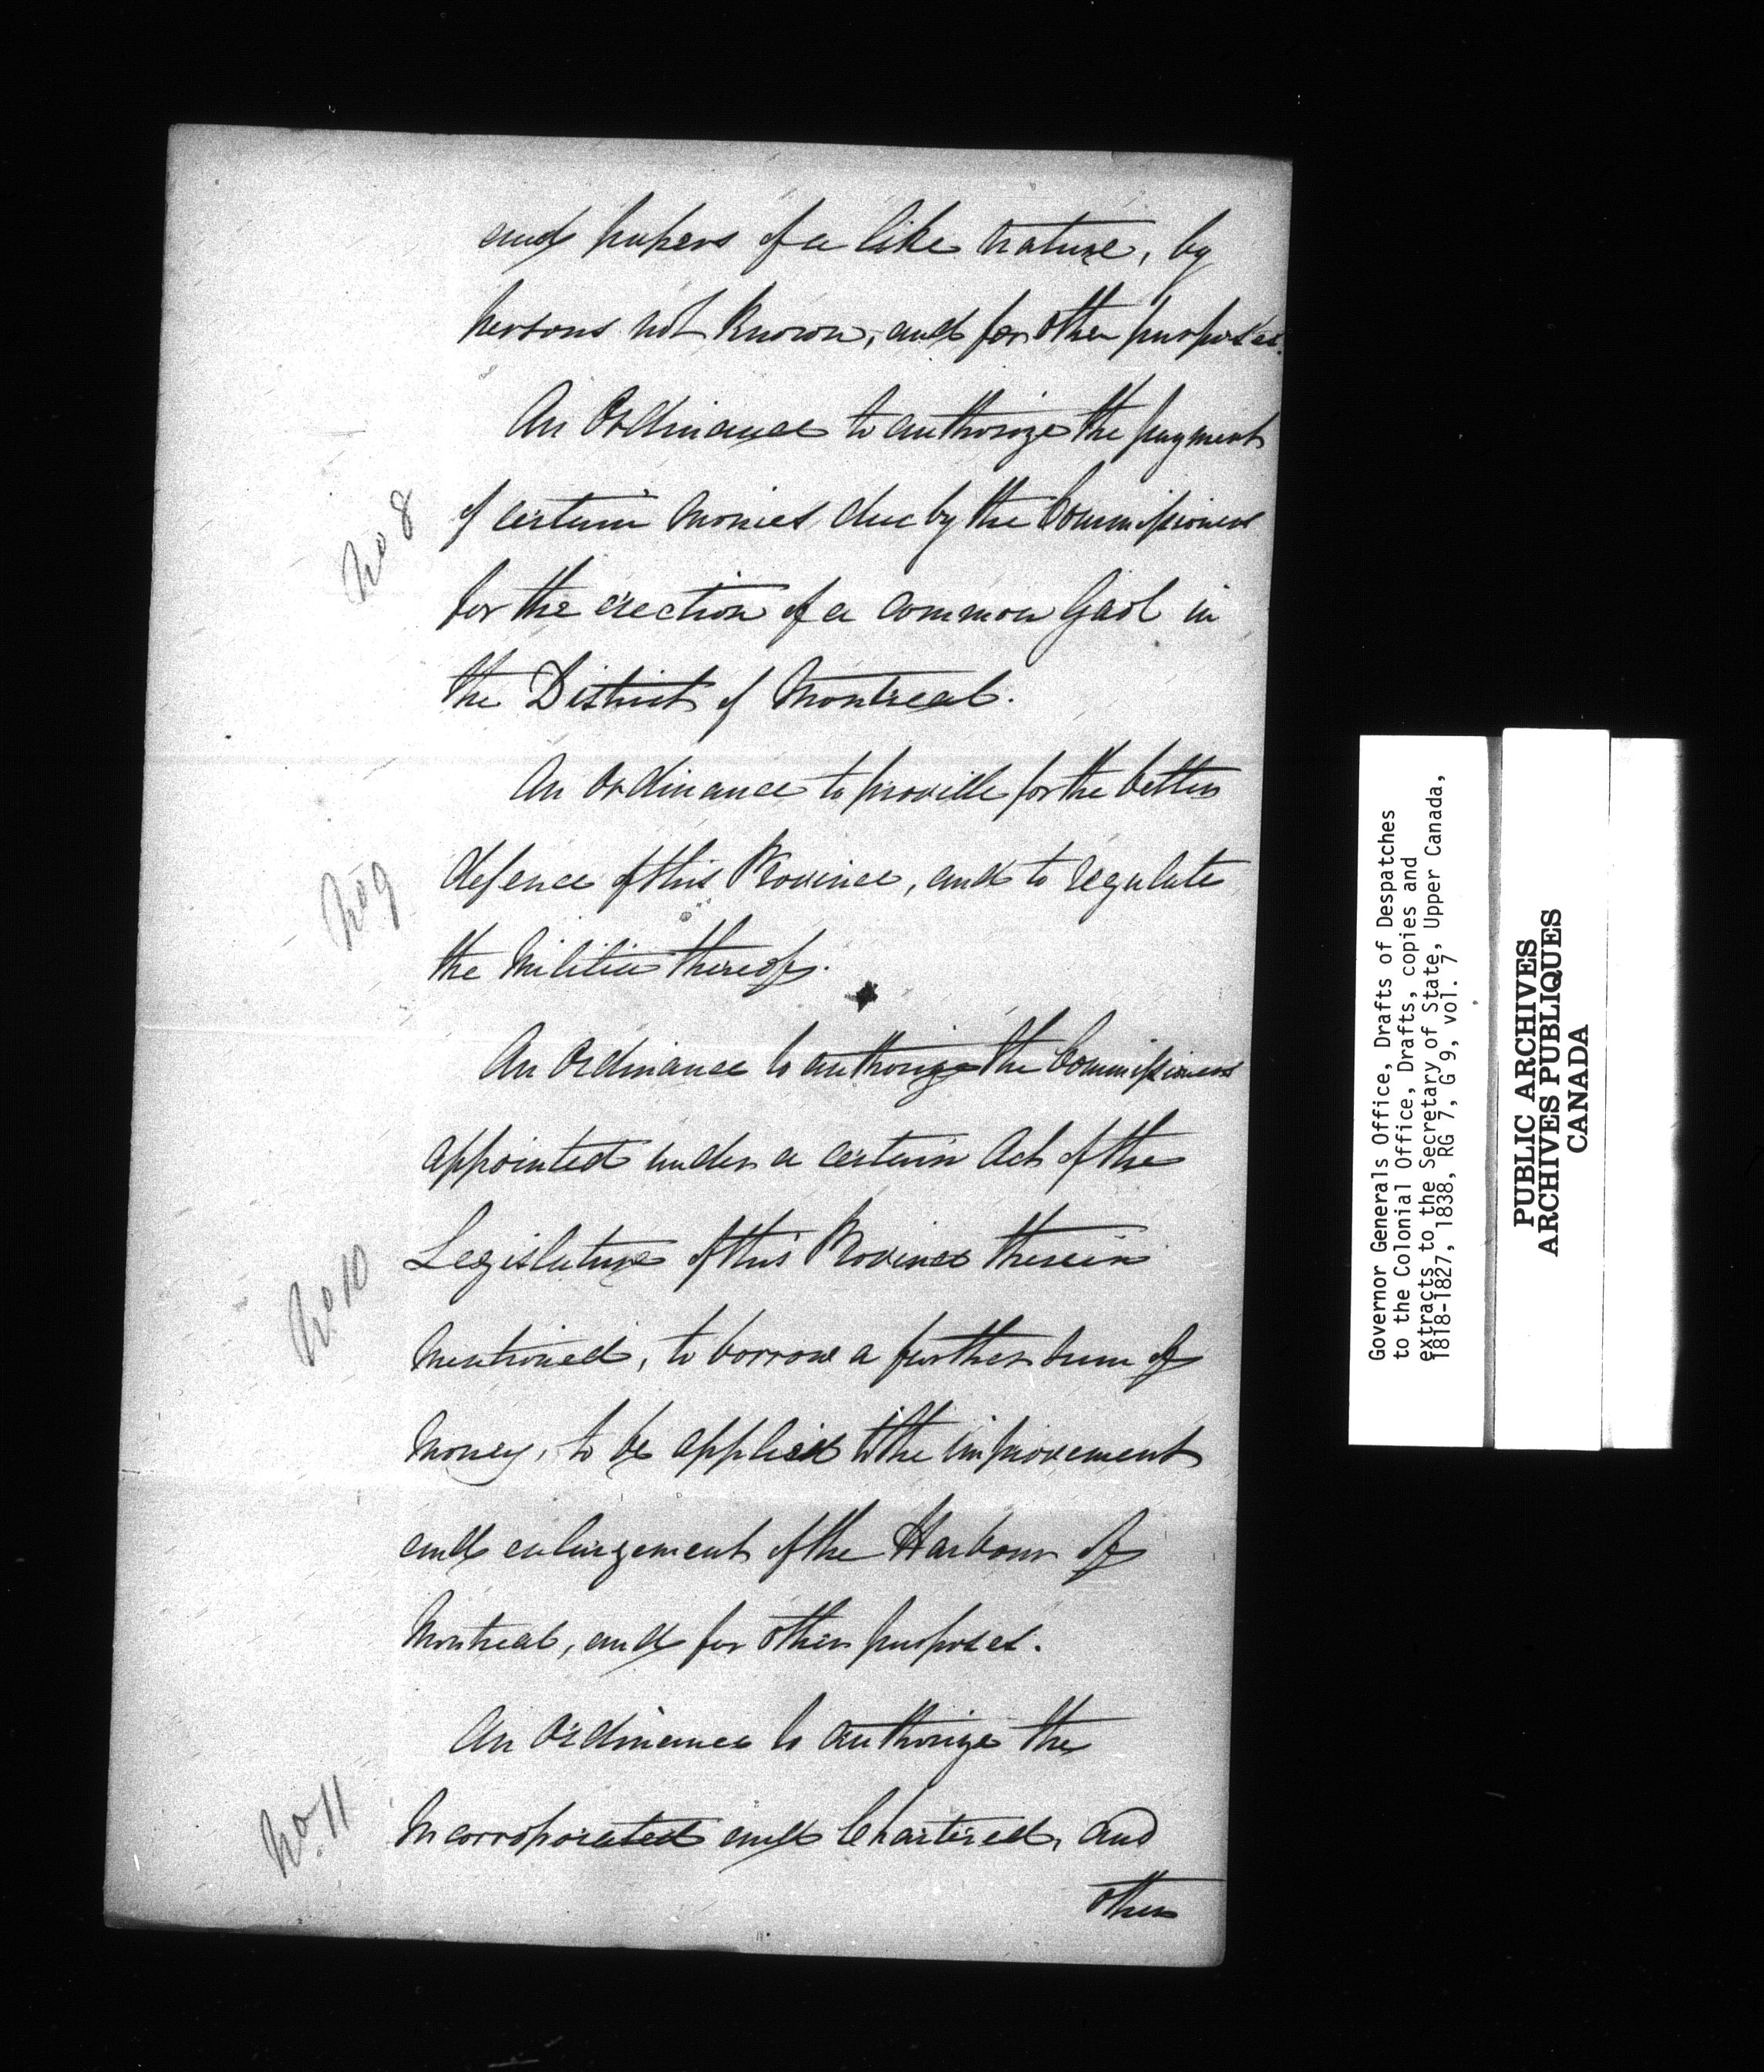 and papers of a like nature, by
persons not known, and for other purposes.
An Ordinance to authorize the payment
No 8
of certain monies due by the Commissioners
for the erection of a common Gaol in
the District of Montreal.
An Ordinance to provide for the better
No 9
defence of this Province, and to regulate
the Militia thereof.
An Ordinance to authorize the Commissioners
appointed under a certain Act of the
Legislature of this Province therein
No 10
mentioned, to borrow a further sum of
money, to be applied to the improvement
and enlargement of the Harbour of
Montreal, and for other purposes.
An Ordinance to authorize the
No. 11
Incorporated and Chartered, and
other
Governor Generals Office, Drafts of Despatches
to the Colonial Office, Drafts, copies and
extracts to the Secretary of State, Upper Canada,
1818-1827, 1838, RG 7, G 9, vol. 7
PUBLIC ARCHIVES
ARCHIVES PUBLIQUES
CANADA